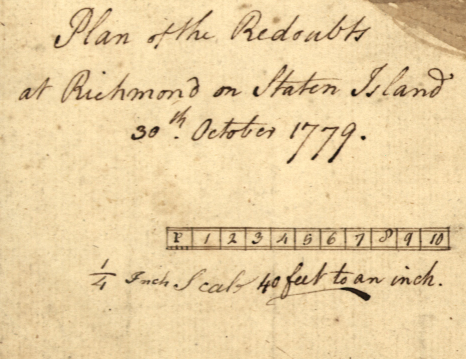 Plan of the Redoubts
at Richmond on Staten Island
30th. October 1779.
P 1 2 3 4 5 6 7 8 9 10
1/4 Inch Scale 40 feet to an inch.